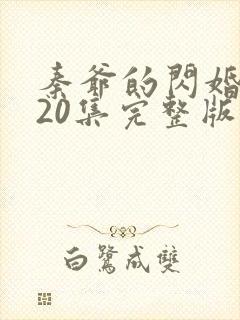 秦爺的閃婚
20集完整版
白鷺成雙